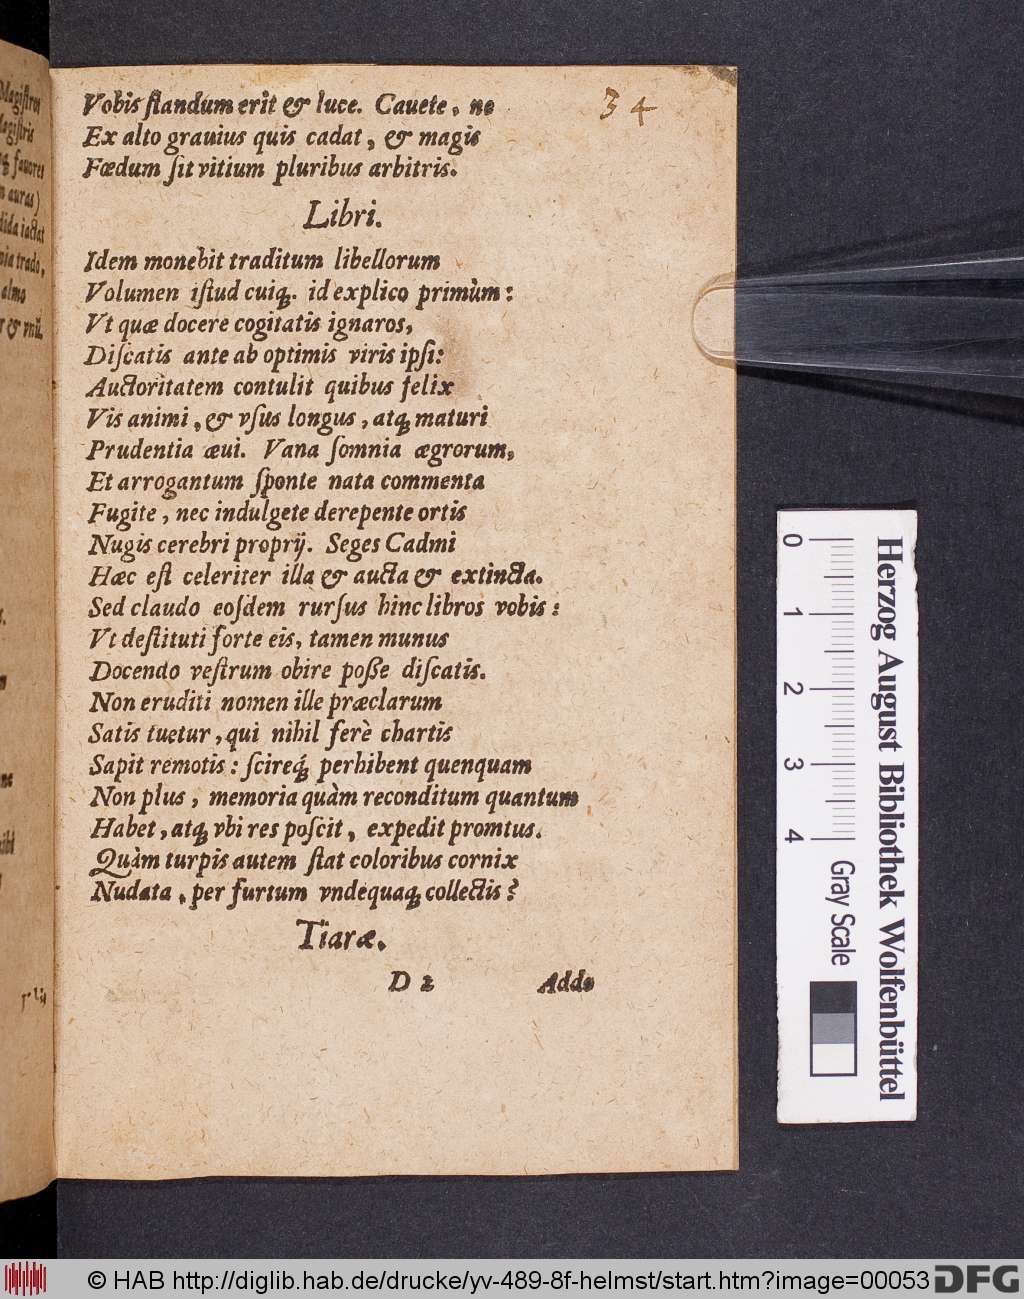 34
Vobis ſtandum erit & luce. Cauete, ne
Ex alto grauius quis cadat, & magis
Fœdum ſit vitium pluribus arbitris.
Libri.
Idem monebit traditum libellorum
Volumen iſtud cuiq́;. id explico primùm:
Vt quæ docere cogitatis ignaros,
Diſcatis ante ab optimis viris ipſi:
Auctoritatem contulit quibus felix
Vis animi, & vſus longus, atq; maturi
Prudentia æui. Vana ſomnia ægrorum,
Et arrogantum ſponte nata commenta
Fugite, nec indulgete derepente ortis
Nugis cerebri proprij. Seges Cadmi
Hæc eſt celeriter illa & aucta & extincta.
Sed claudo eoſdem rurſus hinc libros vobis:
Vt deſtituti forte eis, tamen munus
Docendo veſtrum obire poße diſcatis.
Non eruditi nomen ille præclarum
Satis tuetur, qui nihil ferè chartis
Sapit remotis: ſcireq́; perhibent quenquam
Non plus, memoria quàm reconditum quantum
Habet, atq; vbi res poſcit, expedit promtus.
Quàm turpis autem ſtat coloribus cornix
Nudata, per furtum vndequaq; collectis?
Tiaræ.
D 2 Adde
Magiſtros
Magiſtris
fauores
auras)
iactat
trado,
almo
& vnū.
0 1 2 3 4
Gray Scale
Herzog August Bibliothek Wolfenbüttel
© HAB http://diglib.hab.de/drucke/yv-489-8f-helmst/start.htm?image=00053
DFG